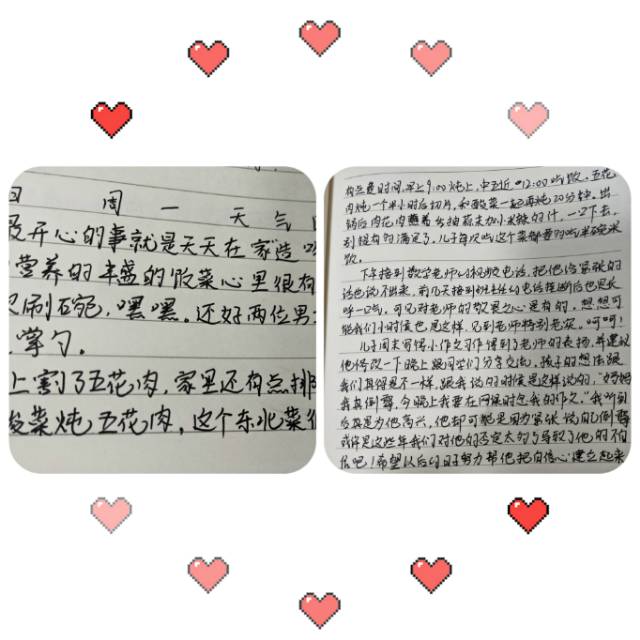 日 周一 天气
开心的事就是天天在家造
营养的丰盛的饭菜心里很有
刷碗,嘿嘿。还好两位男
掌勺。
上割了五花肉,家里还有点排
酸菜炖五花肉,这个东北菜
时间,早上9:00炖上,中午近12:00吃饭。五花
肉炖一个半小时后切片,和酸菜一起再炖20分钟。出
锅后肉花肉蘸着
别提有多满足了。儿子每次吃这个菜都要多吃半碗米
饭。
下午接到数学老师的视频电话,把他给紧张的
话也说不出来,前几天接到班主任的电话挂断后也是长
呼一口气,可见对老师的敬畏之心是有的。想想可
能我们小时候也是这样,见到老师特别老实。呵呵!
儿子周末写得小作文习作得到了老师的表扬,并建议
他修改一下晚上跟同学们分享交流。孩子的想法跟
我们真得是不一样,跟我说的时候是这样说的,“妈妈
我真倒霉,今晚上我要在网课时念我的作文。”我听到
后真是为他高兴,他却可能是因为紧张说自己倒霉
或许是这些年我们对他的否定太多了导致了他的不自
信吧!希望以后的日子努力帮他把自信心建立起来